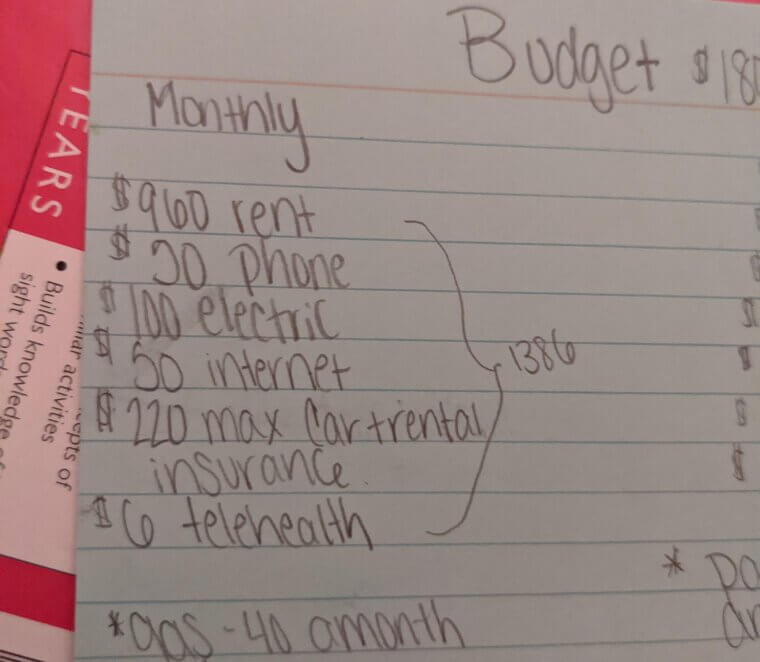 Budget $180
Monthly
$960 rent
$50 phone
$100 electric
$50 internet
$220 max Car+rental
insurance.
$6 telehealth
1386
*gas - 40 a month
YEARS
• Builds knowledge
sight
activities
of